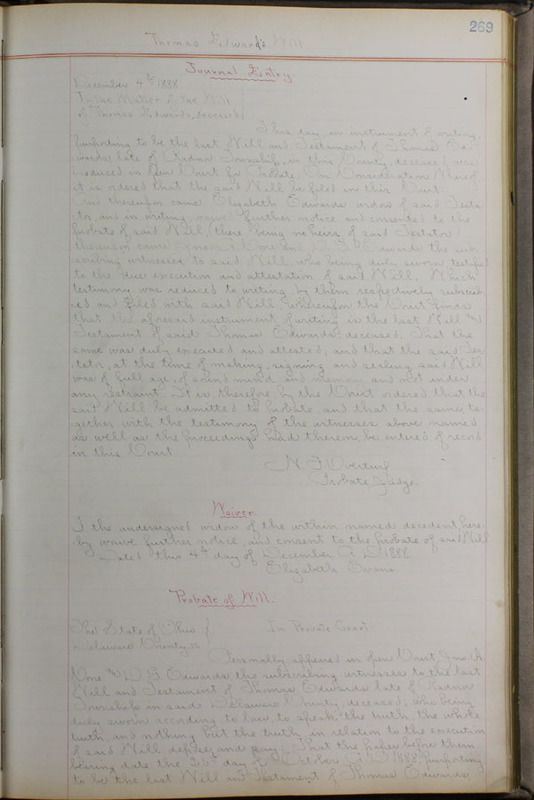 269
Thomas Edwards Will
Journal Entry
December 4th 1888
In the Matter of the Will
of Thomas Edwards, deceased
This day, an instrument of writing
purporting to be the last Will and Testament of Thomas Ed-
wards late of Radnor Township, in this County, deceased, was
produced in Open Court for Probate. On Consideration Whereof
it is ordered that the said Will be filed in this Court
And thereupon came Elizabeth Edwards widow of said Testa-
tor, and in writing waived further notice and consented to the
probate of said Will, there being no heirs of said Testator
thereupon came Edwards the sub-
scribing witnesses to said Will who being duly sworn testified
to the due execution and attestation of said Will, Which
testimony was reduced to writing by them respectively subscrib-
ed and filed with said Will, whereupon the Court finds
that the aforesaid instrument of writing is the last Will and
Testament of said Thomas Edwards, deceased, That the
same was duly executed and attested, and that the said Tes-
tator, at the time of making, signing and sealing said Will
was of full age, of sound mind and memory and not under
any restraint. It is therefore by the Court ordered that the
said Will be admitted to probate and that the same, to-
gether with the testimony of the witnesses above named
as well as the proceedings had thereon, be entered of record
in this Court
N F Overturf
Probate Judge
Waiver
I the undersigned widow of the within named decedent, here-
by waive further notice, and consent to the probate of said Will
Dated this 4th day of December A D 1888
Elizabeth
Probate of Will
The State of Ohio
Delaware County, ss
In Probate Court
Personally appeared in open Court, Jno. A.
and D. Edwards the subscribing witnesses to the last
Will and Testament of Thomas Edwards late of Radnor
Township in said Delaware County, deceased, who being
duly sworn according to law to speak the truth the whole
truth and nothing but the truth, in relation to the execution
of said Will deposes and says, That the paper before them
bearing date the day of October A D 1888, purporting
to be the last Will and Testament of Thomas Edwards